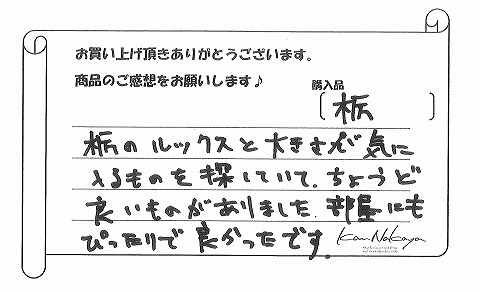 お買い上げ頂きありがとうございます。
商品のご感想をお願いします♪
購入品
〔 栃 〕
栃のルックスと大きさが気に
入るものを探していて、ちょうど
良いものがありました。部屋にも
ぴったりで良かったです。
KanNakaya